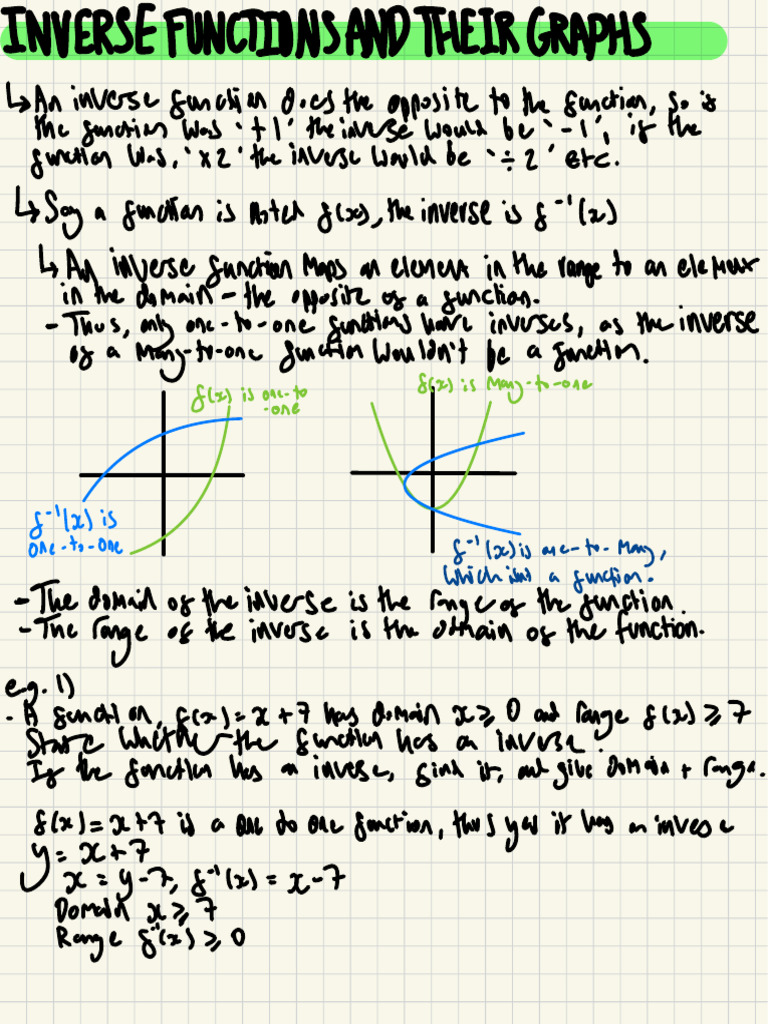 INVERSE FUNCTIONS AND THEIR GRAPHS
↳ An inverse function does the opposite to the function, so if
the function was '+1' the inverse would be '-1', if the
function was, 'x2' the inverse would be '÷2' etc.
↳ Say a function is noted f(x), the inverse is f⁻¹(x)
↳ An inverse function maps an element in the range to an element
in the domain - the opposite of a function.
- Thus, only one-to-one functions have inverses, as the inverse
of a many-to-one function wouldn't be a function.
f(x) is one-to
-one
f⁻¹(x) is
one-to-one
f(x) is many-to-one
f⁻¹(x) is one-to-many,
which isnt a function.
- The domain of the inverse is the range of the function.
- The range of the inverse is the domain of the function.
e.g. 1)
- A function, f(x) = x + 7 has domain x ≥ 0 and range f(x) ≥ 7
State whether the function has an inverse.
If the function has an inverse, find it, and give domain + range.
f(x) = x + 7 is a one to one function, thus yes it has an inverse
y = x + 7
x = y - 7, f⁻¹(x) = x - 7
Domain x ≥ 7
Range f⁻¹(x) ≥ 0